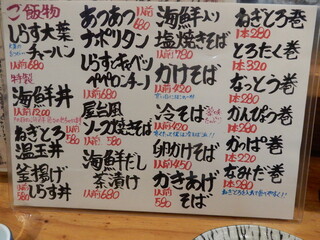 ご飯物
しらす大葉
チャーハン
特製
海鮮丼
1人前1200
ねぎとろ
温玉丼
釜揚げ
しらす丼
あつあつ
ナポリタン
1人前680
しらすとキャベツ
ペペロンチーノ
1人前680
屋台風
ソース焼きそば
1人前580
海鮮だし
茶漬け
1人前680
海鮮入り
塩焼きそば
1人前720
かけそば
1人前420
冷そば
1人前450
卵かけそば
1人前450
かきあげ
そば
1人前580
ねぎとろ巻
1本680
とろたく巻
1本320
なっとう巻
1本280
かんぴょう巻
1本280
かっぱ巻
1本220
なみだ巻
1本280